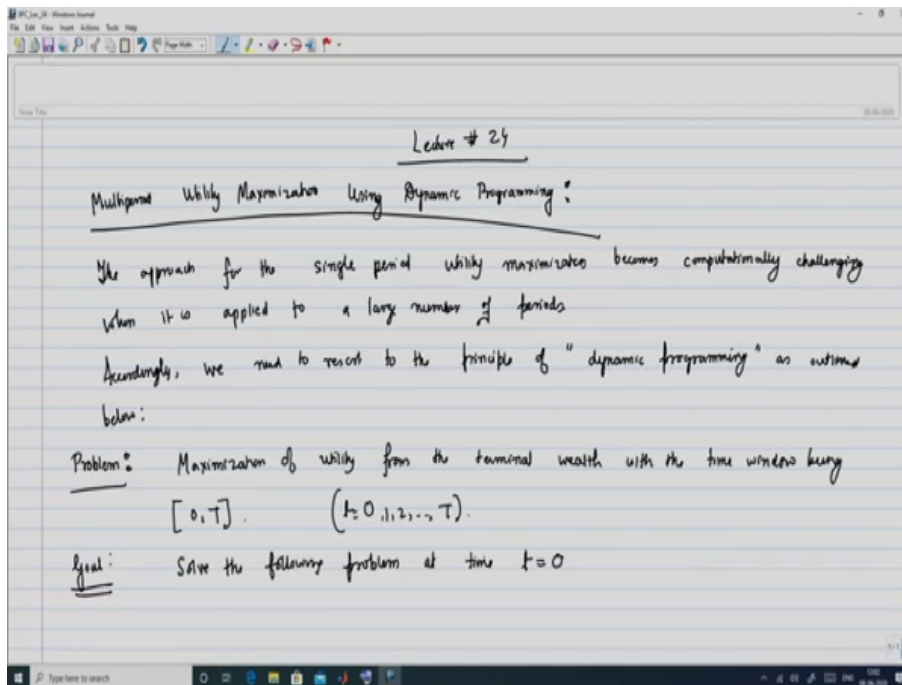 SPC_Lec_24 - Windows Journal
File Edit View Insert Actions Tools Help
Page Width
Note Title
08-06-2020
Lecture # 24
Multiperiod Utility Maximization Using Dynamic Programming:
The approach for the single period utility maximization becomes computationally challenging
when it is applied to a large number of periods
Accordingly, we need to resort to the principle of "dynamic programming" as outlined
below:
Problem: Maximization of utility from the terminal wealth with the time window being
[0,T]. (t=0,1,2,..,T).
Goal: Solve the following problem at time t=0
1/1
Type here to search
ENG
08-06-2020